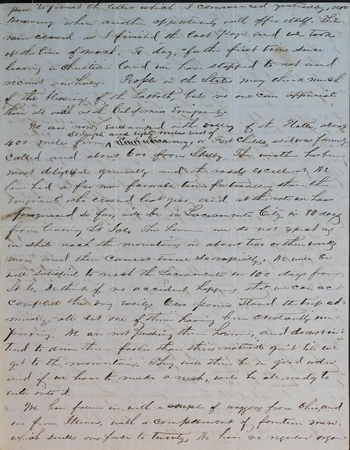 upon to finish the letter which I commenced yesterday, not
knowing when another opportunity will offer itself. The
rain ceased as I finished the last page and we took
up the line of march. To day, for the first time since
leaving a Christian land we have stopped to rest and
recruit on Sunday. People in the States may think much
of the blessing of the Sabbath but no one can appreciate
them so well as the California Emigrant.
We are now encamped in the valley of the Platte, about
Seventy and eighty miles west
400 miles from Fort Childs as it was formerly
called and about 600 from St Joe. The weather has been
most delightful generally and the roads excellent. We
have had so far a more favorable time fortunately than the
emigrants who crossed last year and at the rate we have
progressed so far, will be in Sacramento City in 90 days
from leaving St Joe. We do not expect
in about two or three weeks
more and then cannot travel so rapidly. We will be
well satisfied to reach the Sacramento in 100 days from
St Jo. and think if no accident happens that we can ac-
complish this very easily. Our ponies stand the trip ad-
mirably, all but one of them having been constantly im-
proving. We are not pushing them however, and do not in-
tend to drive them faster than their natural gait till we
get to the mountains. They will then be in good order
and if we have to make a push, will be all ready to
enter into it.
We have fallen in with a couple of waggons from Ohio, and
one from Illinois, with a complement of fourteen men,
which swells our force to twenty. We have no regular organ-